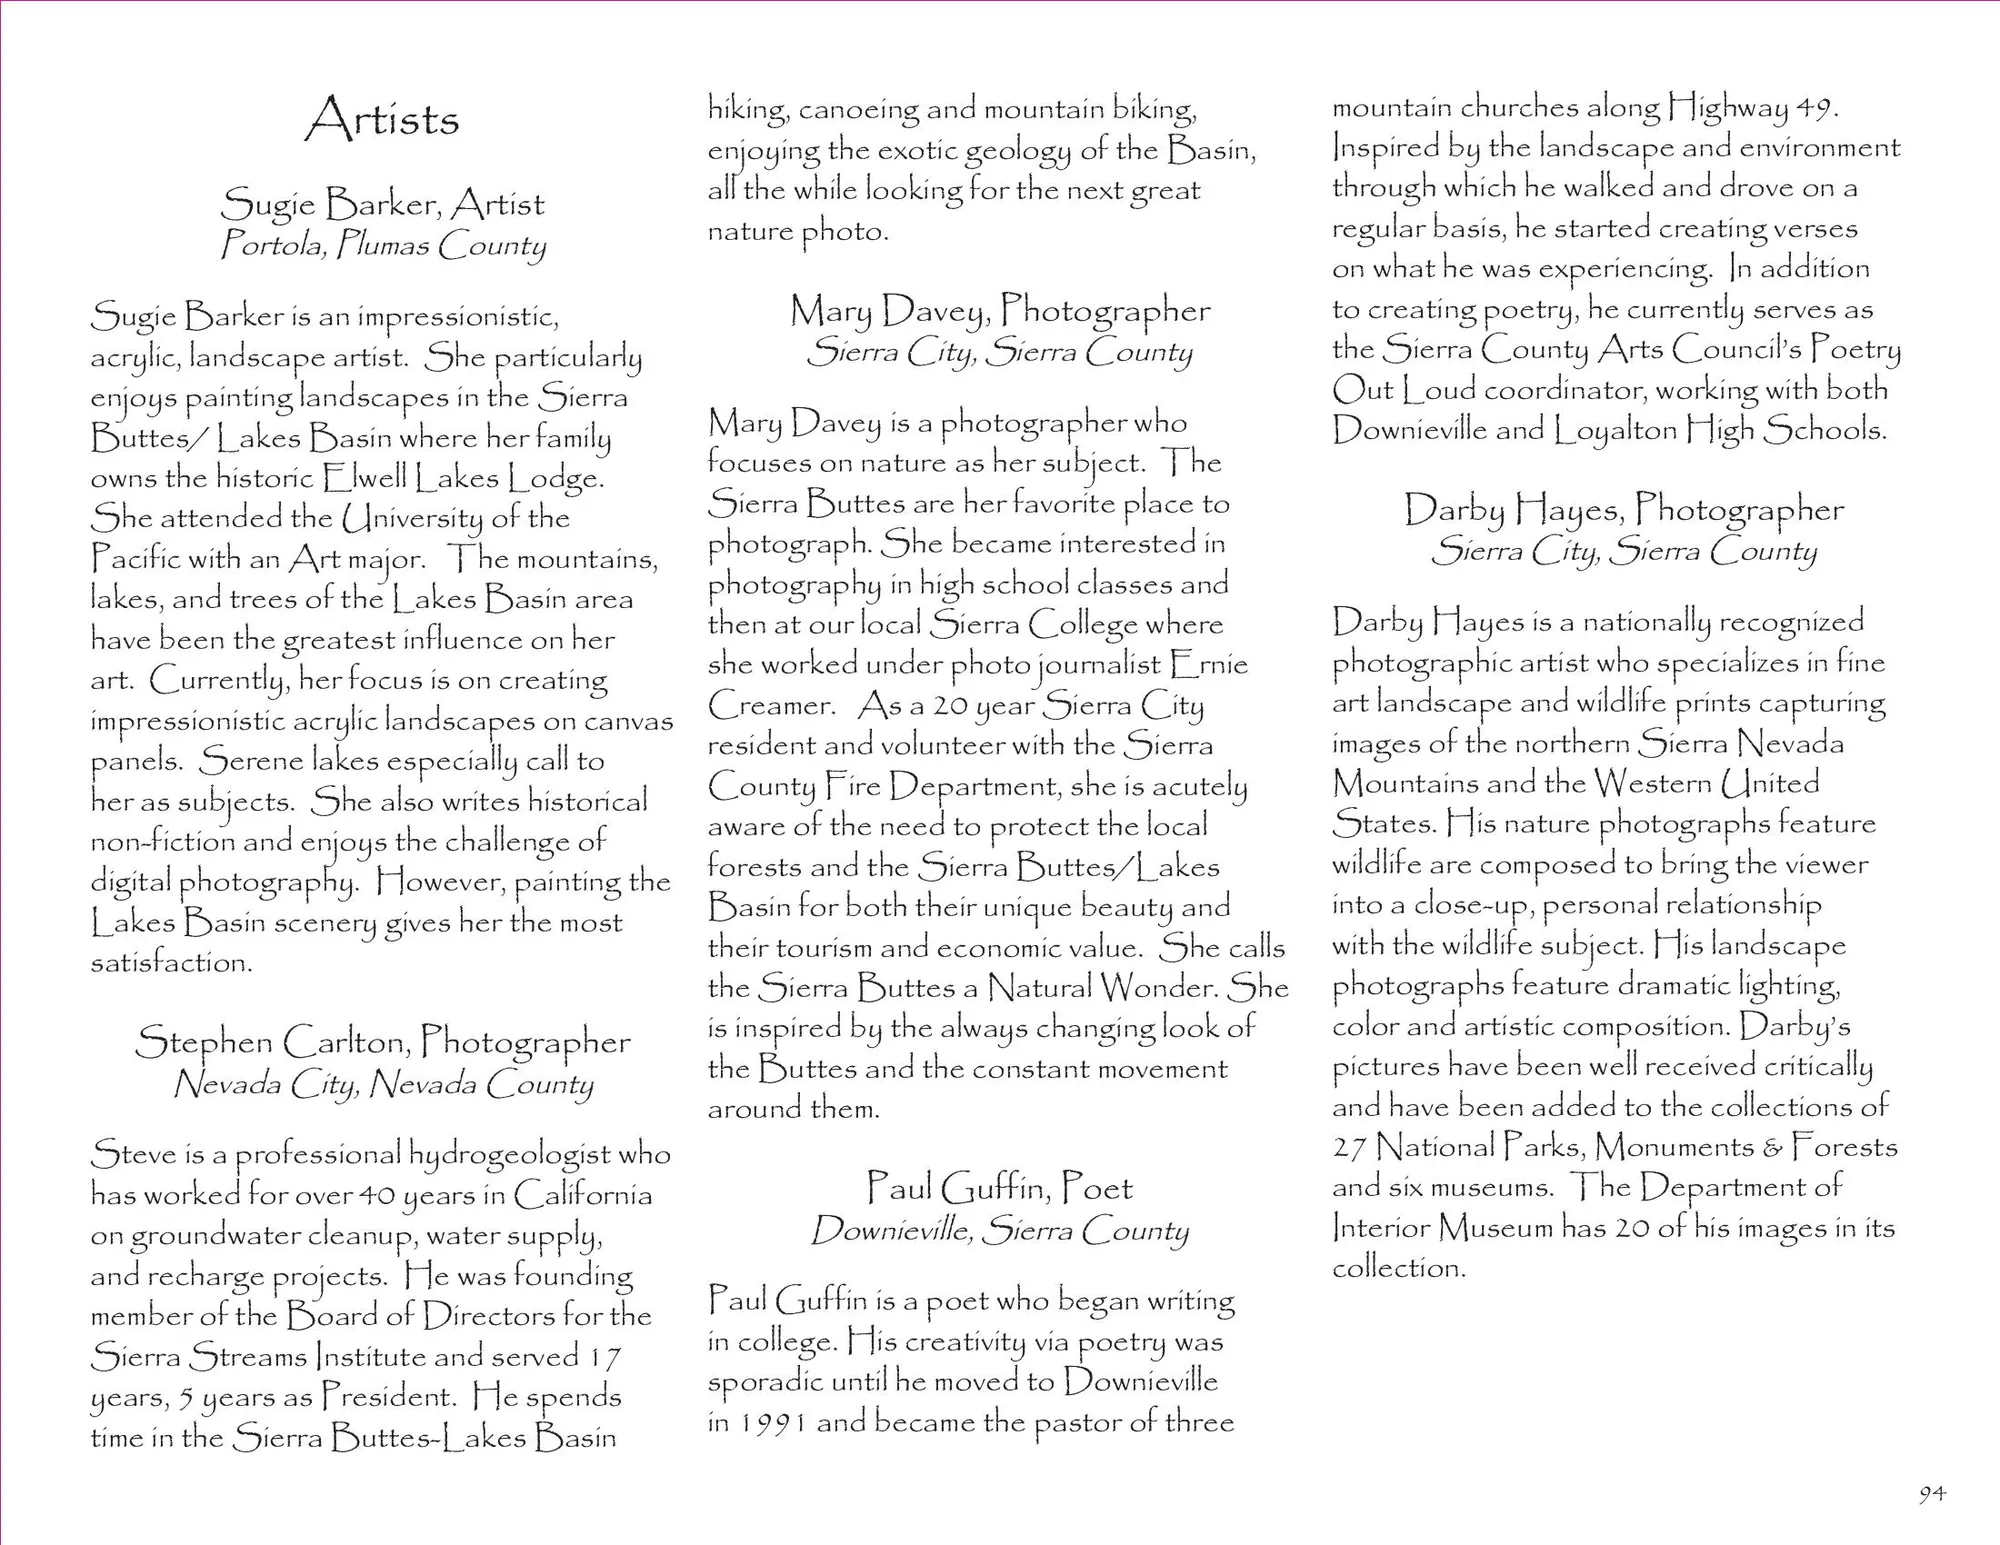 Artists
Sugie Barker, Artist
Portola, Plumas County
Sugie Barker is an impressionistic,
acrylic, landscape artist.  She particularly
enjoys painting landscapes in the Sierra
Buttes/ Lakes Basin where her family
owns the historic Elwell Lakes Lodge.
She attended the University of the
Pacific with an Art major.   The mountains,
lakes, and trees of the Lakes Basin area
have been the greatest influence on her
art.  Currently, her focus is on creating
impressionistic acrylic landscapes on canvas
panels.  Serene lakes especially call to
her as subjects.  She also writes historical
non-fiction and enjoys the challenge of
digital photography.  However, painting the
Lakes Basin scenery gives her the most
satisfaction.
Stephen Carlton, Photographer
Nevada City, Nevada County
Steve is a professional hydrogeologist who
has worked for over 40 years in California
on groundwater cleanup, water supply,
and recharge projects.  He was founding
member of the Board of Directors for the
Sierra Streams Institute and served 17
years, 5 years as President.  He spends
time in the Sierra Buttes-Lakes Basin
hiking, canoeing and mountain biking,
enjoying the exotic geology of the Basin,
all the while looking for the next great
nature photo.
Mary Davey, Photographer
Sierra City, Sierra County
Mary Davey is a photographer who
focuses on nature as her subject.  The
Sierra Buttes are her favorite place to
photograph. She became interested in
photography in high school classes and
then at our local Sierra College where
she worked under photo journalist Ernie
Creamer.   As a 20 year Sierra City
resident and volunteer with the Sierra
County Fire Department, she is acutely
aware of the need to protect the local
forests and the Sierra Buttes/Lakes
Basin for both their unique beauty and
their tourism and economic value.  She calls
the Sierra Buttes a Natural Wonder. She
is inspired by the always changing look of
the Buttes and the constant movement
around them.
Paul Guffin, Poet
Downieville, Sierra County
Paul Guffin is a poet who began writing
in college. His creativity via poetry was
sporadic until he moved to Downieville
in 1991 and became the pastor of three
mountain churches along Highway 49.
Inspired by the landscape and environment
through which he walked and drove on a
regular basis, he started creating verses
on what he was experiencing.  In addition
to creating poetry, he currently serves as
the Sierra County Arts Council's Poetry
Out Loud coordinator, working with both
Downieville and Loyalton High Schools.
Darby Hayes, Photographer
Sierra City, Sierra County
Darby Hayes is a nationally recognized
photographic artist who specializes in fine
art landscape and wildlife prints capturing
images of the northern Sierra Nevada
Mountains and the Western United
States. His nature photographs feature
wildlife are composed to bring the viewer
into a close-up, personal relationship
with the wildlife subject. His landscape
photographs feature dramatic lighting,
color and artistic composition. Darby's
pictures have been well received critically
and have been added to the collections of
27 National Parks, Monuments & Forests
and six museums.  The Department of
Interior Museum has 20 of his images in its
collection.
94